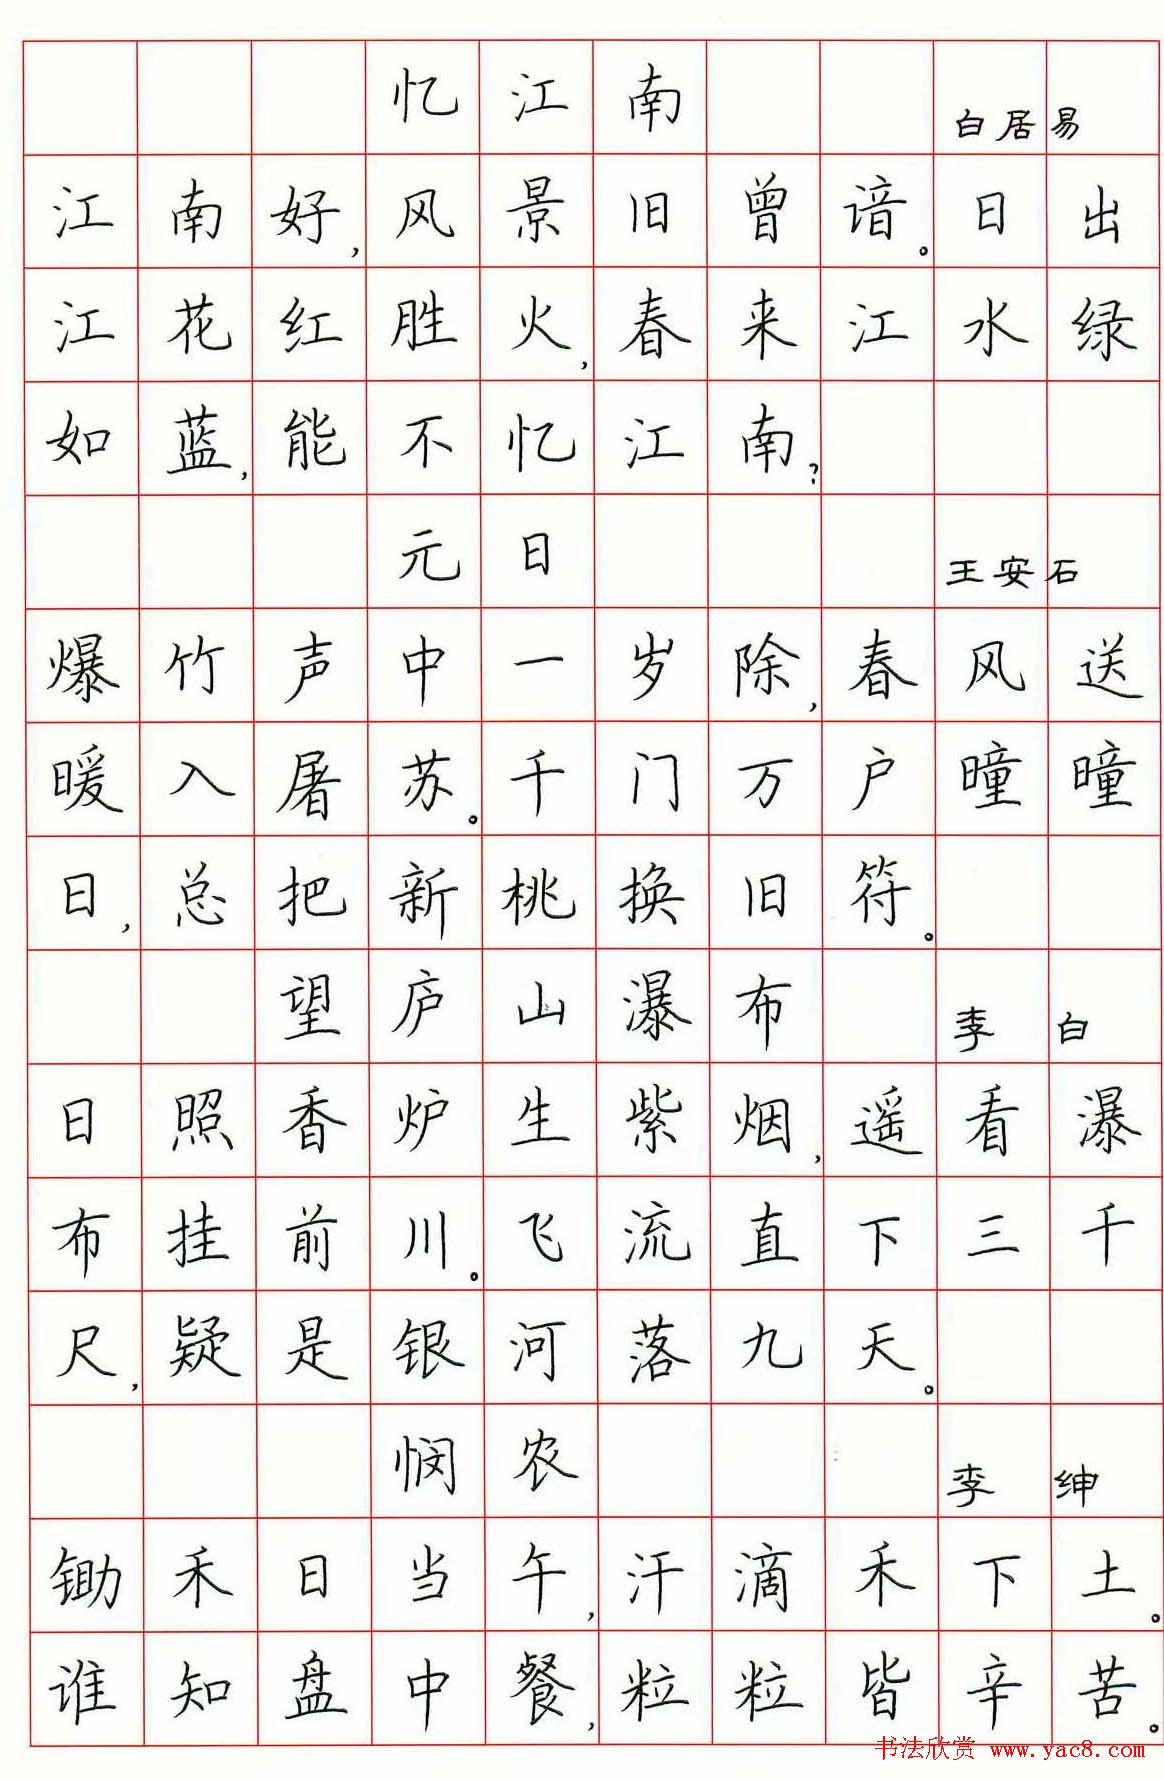 忆江南 白居易
江南好,风景旧曾谙。日出
江花红胜火,春来江水绿
如蓝,能不忆江南?
元日 王安石
爆竹声中一岁除,春风送
暖入屠苏。千门万户曈曈
日,总把新桃换旧符。
望庐山瀑布 李白
日照香炉生紫烟,遥看瀑
布挂前川。飞流直下三千
尺,疑是银河落九天。
悯农 李绅
锄禾日当午,汗滴禾下土。
谁知盘中餐,粒粒皆辛苦。
书法欣赏 www.yac8.com